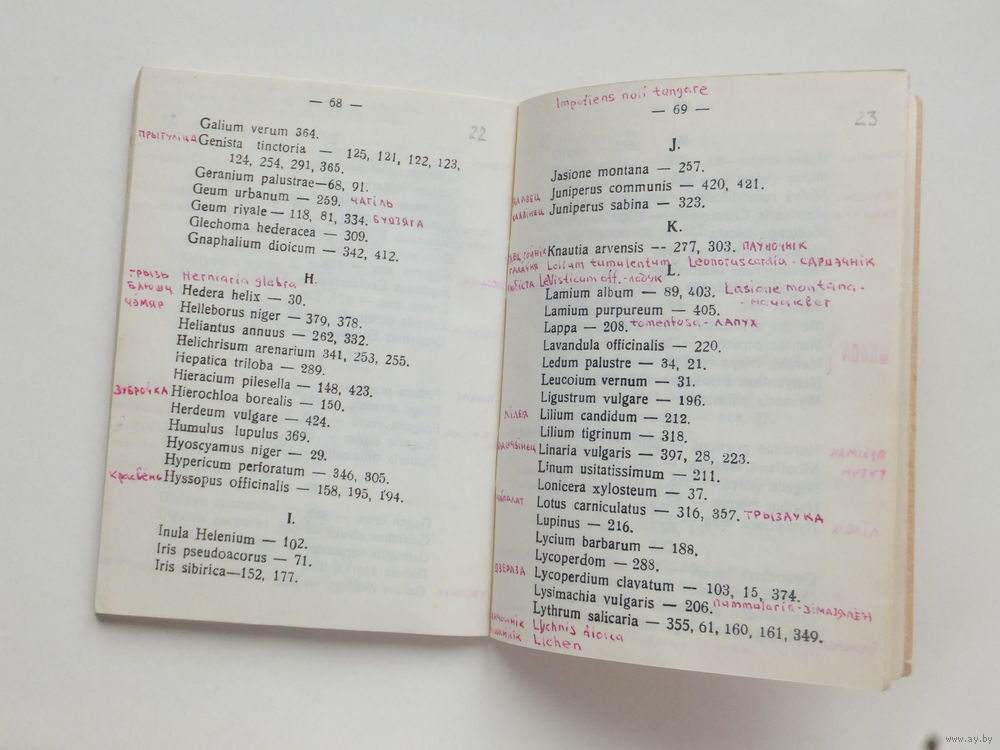 — 68 —
22
Galium verum 364.
прытуліца Genista tinctoria — 125, 121, 122, 123,
124, 254, 291, 365.
Geranium palustrae—68, 91.
Geum urbanum — 259. чагіль
Geum rivale — 118, 81, 334. буязяга
Glechoma hederacea — 309.
Gnaphalium dioicum — 342, 412.
H.
грызь Herniaria glabra
блюшч Hedera helix — 30.
чэмяр Helleborus niger — 379, 378.
Heliantus annuus — 262, 332.
Helichrisum arenarium 341, 253, 255.
Hepatica triloba — 289.
Hieracium pilesella — 148, 423.
зуброўка Hierochloa borealis — 150.
Herdeum vulgare — 424.
Humulus lupulus 369.
Hyoscyamus niger — 29.
Hypericum perforatum — 346, 305.
красвень Hyssopus officinalis — 158, 195, 194.
I.
Inula Helenium — 102.
Iris pseudoacorus — 71.
Iris sibirica—152, 177.
Impatiens noli tangare
— 69 —
23
J.
Jasione montana — 257.
Juniperus communis — 420, 421.
Juniperus sabina — 323.
K.
Knautia arvensis -- 277, 303. пауночнік
Lolium tumulentum - Leonorus cardia - сардэчнік
L.
Levisticum off. - любук
Lamium album — 89, 403. Lasione montana -
Lamium purpureum — 405.
Lappa — 208. tomentosa - лапух
Lavandula officinalis — 220.
Ledum palustre — 34, 21.
Leucoium vernum — 31.
Ligustrum vulgare — 196.
лілея Lilium candidum — 212.
Lilium tigrinum — 318.
Linaria vulgaris — 397, 28, 223.
Linum usitatissimum — 211.
Lonicera xylosteum — 37.
Lotus carniculatus — 316, 357. трызаука
Lupinus — 216.
Lycium barbarum — 188.
Lycoperdom — 288.
дзераза Lycoperdium clavatum — 103, 15, 374.
Lysimachia vulgaris — 206. nummularia - зімазялен
Lythrum salicaria — 355, 61, 160, 161, 349.
Lychnis dioica
Lichen
www.ay.by